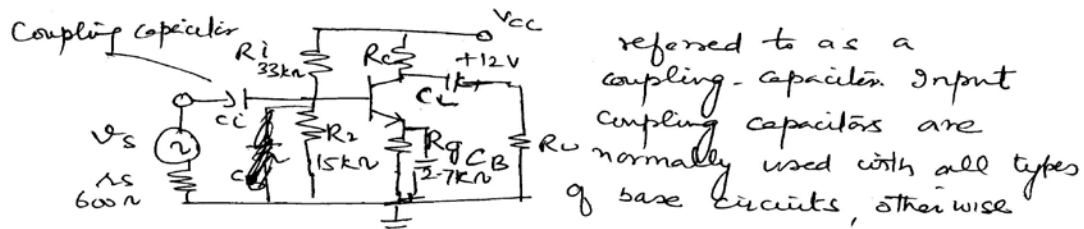 Coupling capacitor
VCC
Ri
33kΩ
RC
+12V
CL
Ci
R2
15kΩ
CB
2.7kΩ
RL
vs
rs
600Ω
referred to as a
coupling-capacitor. Input
coupling capacitors are
normally used with all types
of base circuits, otherwise